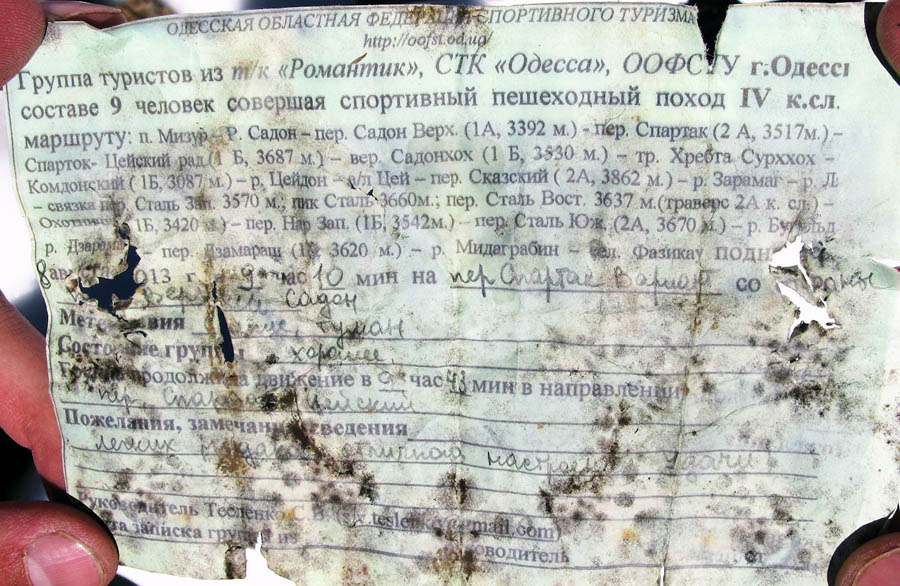 ОДЕССКАЯ ОБЛАСТНАЯ ФЕДЕРАЦИЯ СПОРТИВНОГО ТУРИЗМА
http://oofst.od.ua/
Группа туристов из т/к «Романтик», СТК «Одесса», ООФСТУ г.Одессы
составе 9 человек совершая спортивный пешеходный поход IV к.сл.
маршруту: п. Мизур – Р. Садон – пер. Садон Верх. (1А, 3392 м.) - пер. Спартак (2 А, 3517м.) –
Спарток- Цейский рад.(1 Б, 3687 м.) – вер. Садонхох (1 Б, 3530 м.) – тр. Хребта Сурххох -
Комдонский ( 1Б, 3087 м.) – р. Цейдон – а/л Цей – пер. Сказский ( 2А, 3862 м.) – р. Зарамаг – р. Л
– связка пер. Сталь Зап. 3570 м.; пик Сталь 3660м.; пер. Сталь Вост. 3637 м.(траверс 2А к. сл.) –
(1Б, 3420 м.) – пер. Нар Зап. (1Б, 3542м.) – пер. Сталь Юж. (2А, 3670 м.) – р.
р. пер. Дзамараш (1Б, 3620 м.) – р. Мидаграбин – сел. Фазикау
013 г. 9 час 10 мин на пер Спартак Вариан со
Садон
туман
Состояние группы хорошее
Группа продолжила движение в 9 час 43 мин в направлении
пер. Спартак Цейский
Пожелания, замечания, сведения
легких отличного настроения удачи
Руководитель Тесленко С.В.
записка группы из руководитель от